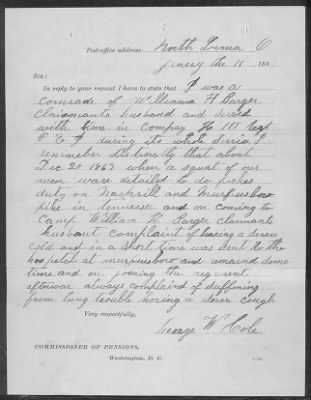 Post-office address: North Lima O
Janery the 18, 189
SIR:
In reply to your request I have to state that I was a
comrade of William H Barger
Claimants husband and served
with him in Compay H 111 Regt
O V I during its whole Servis I
remember distinctly that about
Dec 20 1863 when a squat of our
men ware detailed to do picket
duty on Nashvill and Murfusboro
pike in tennessee and on coming to
Camp William H Barger claimants
husbant complaint of having a Severe
Cold and in a short time was Sent to the
hospetel at murfusboro and remaind some
time and on joining the regiment
afterwar always complaind of suffering
from lung trouble having a Sever cough
Very respectfully,
George W Cole
COMMISSIONER OF PENSIONS,
Washington, D. C.